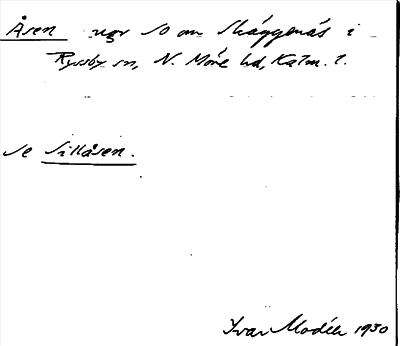 Åsen ugr SO om Skäggenäs i
Ryssby sn, N. Möre hd, Kalm. l.
se Sillåsen.
Ivar Modéer 1930